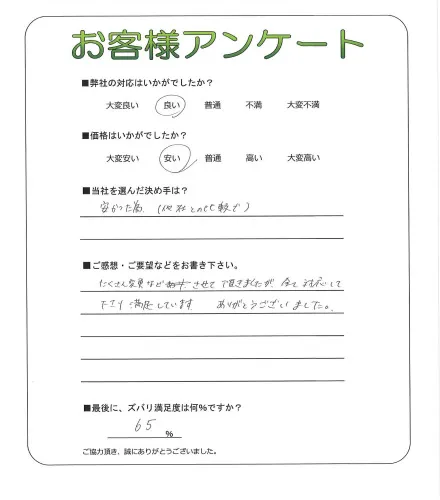 お客様アンケート
■弊社の対応はいかがでしたか?
大変良い 良い 普通 不満 大変不満
■価格はいかがでしたか?
大変安い 安い 普通 高い 大変高い
■当社を選んだ決め手は?
安かった為 (他社との比較で)
■ご感想・ご要望などをお書き下さい。
たくさん など させて頂きましたが、全て対応して
下さり満足しています ありがとうございました。
■最後に、ズバリ満足度は何%ですか?
65 %
ご協力頂き、誠にありがとうございました。